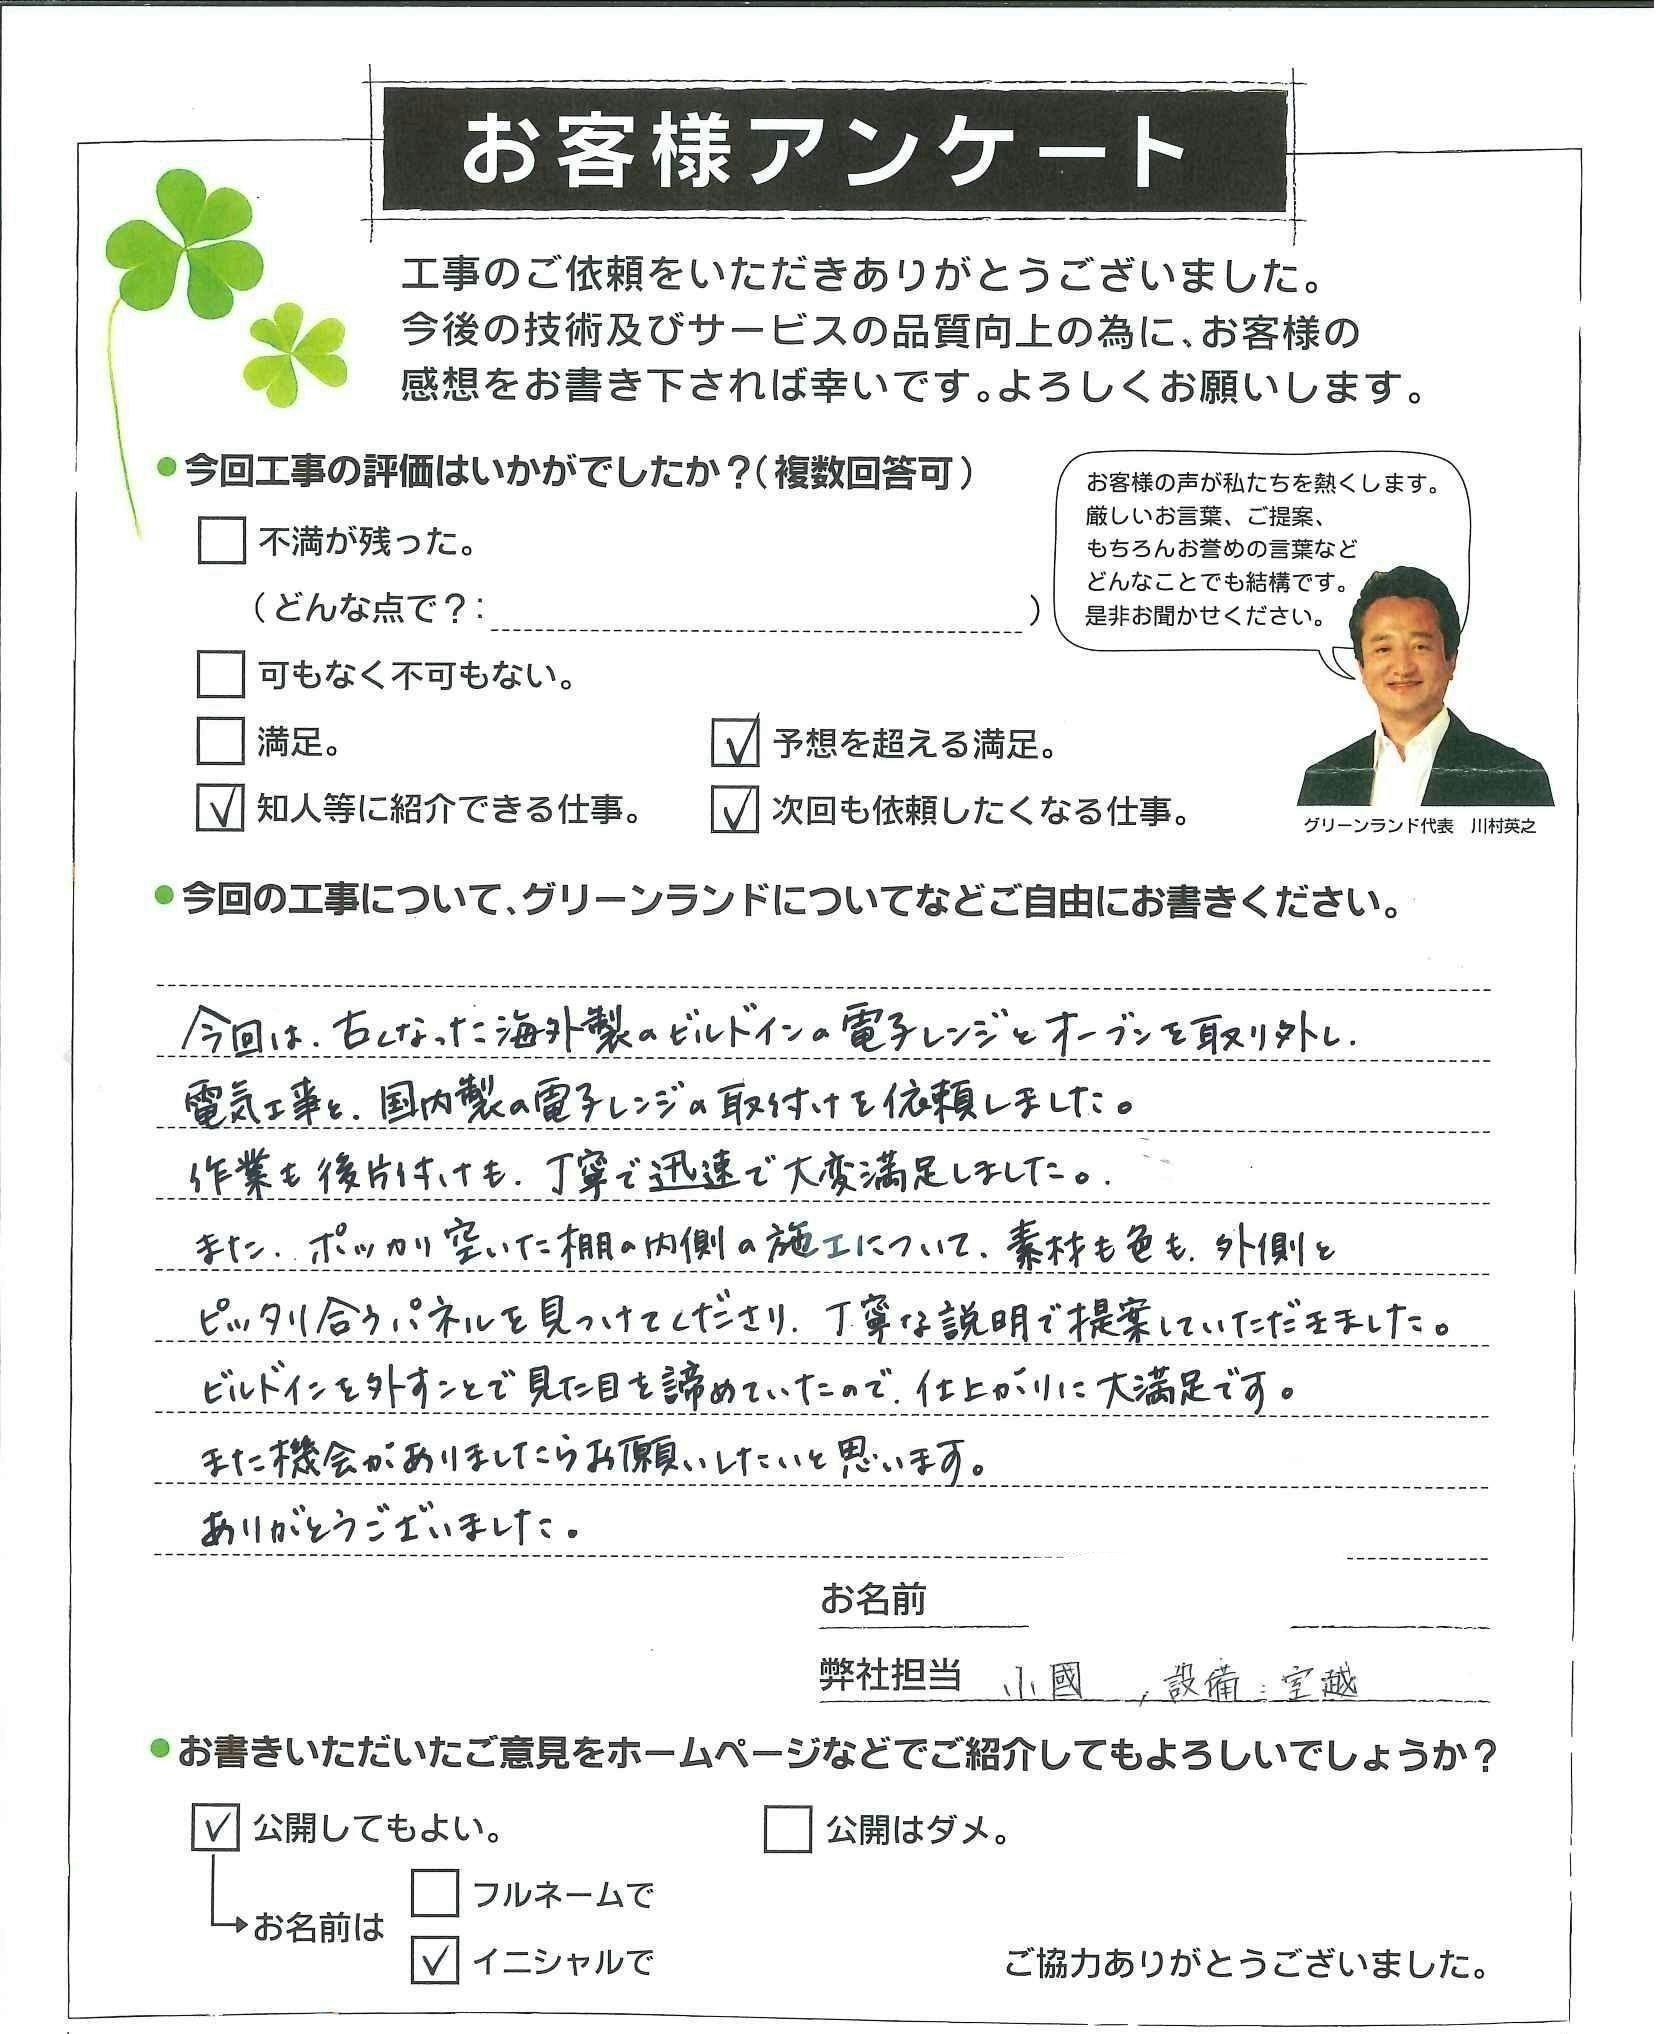 お客様アンケート
工事のご依頼をいただきありがとうございました。
今後の技術及びサービスの品質向上の為に、お客様の
感想をお書き下されば幸いです。よろしくお願いします。
●今回工事の評価はいかがでしたか？（複数回答可）
不満が残った。
（どんな点で？：）
可もなく不可もない。
満足。
✓ 予想を超える満足。
✓ 知人等に紹介できる仕事。
✓ 次回も依頼したくなる仕事。
お客様の声が私たちを熱くします。
厳しいお言葉、ご提案、
もちろんお誉めの言葉など
どんなことでも結構です。
是非お聞かせください。
グリーンランド代表　川村英之
●今回の工事について、グリーンランドについてなどご自由にお書きください。
今回は、古くなった海外製のビルドインの電子レンジとオーブンを取り外し、
電気工事と、国内製の電子レンジの取付けを依頼しました。
作業も後片付けも、丁寧で迅速で大変満足しました。
また、ポッカリ空いた棚の内側の施工について、素材も色も、外側と
ピッタリ合うパネルを見つけてくださり、丁寧な説明で提案していただきました。
ビルドインを外すことで見た目を諦めていたので、仕上がりに大満足です。
また機会がありましたらお願いしたいと思います。
ありがとうございました。
お名前
弊社担当 小國 、設備：室越
●お書きいただいたご意見をホームページなどでご紹介してもよろしいでしょうか？
✓ 公開してもよい。
公開はダメ。
お名前は
フルネームで
✓ イニシャルで
ご協力ありがとうございました。